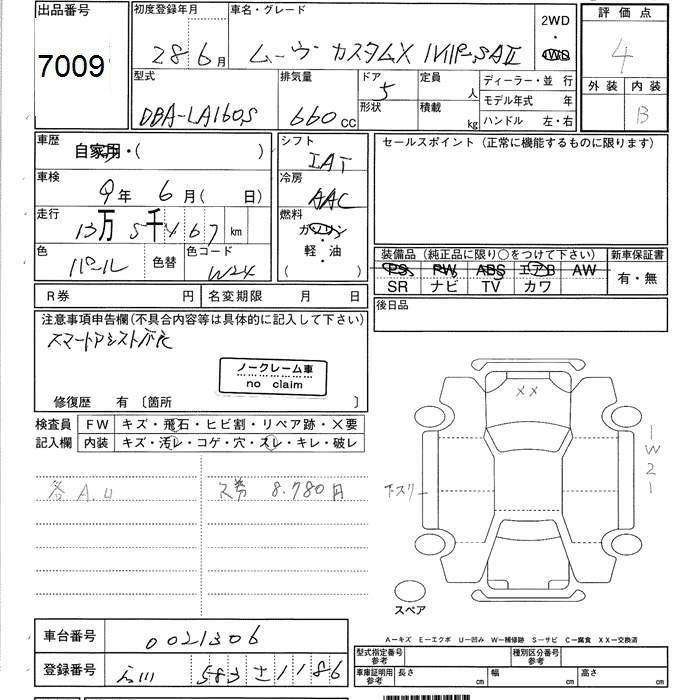 出品番号
7009
初度登録年月
28 6月
車名・グレード
ムーヴ カスタムX SAⅡ
2WD
・
4WD
評価点
4
外装 内装
B
型式
DBA-LA160S
排気量
660 cc
ドア
5
形状
定員
人
積載
kg
ディーラー・並行
モデル年式 年
ハンドル 左・右
車歴
自家用・( )
シフト
IAT
セールスポイント (正常に機能するものに限ります)
車検
9年 6月( 日)
冷房
AAC
走行
13万5千467 km
燃料
ガソリン
・
軽・油
( )
色
パール
色替
色コード
W24
装備品 (純正品に限り○をつけて下さい)
PS PW ABS エアB AW
SR ナビ TV カワ
新車保証書
有・無
R券 円
名変期限 月 日
後日品
注意事項申告欄(不具合内容等は具体的に記入して下さい)
スマートアシスト
ノークレーム車
no claim
修復歴 有 〔箇所 〕
検査員
記入欄
FW キズ・飛石・ヒビ割・リペア跡・×要
内装 キズ・汚レ・コゲ・穴・スレ・キレ・破レ
各A.U
ス券 8.780円
××
W2
下スリ
スペア
車台番号
0021306
登録番号
583 さ 1186
A−キズ E−エクボ U−凹み W−補修跡 S−サビ C−腐食 XX−交換済
型式指定番号
参考
種別区分番号
参考
車庫証明用
参考
長さ cm
幅 cm
高さ cm